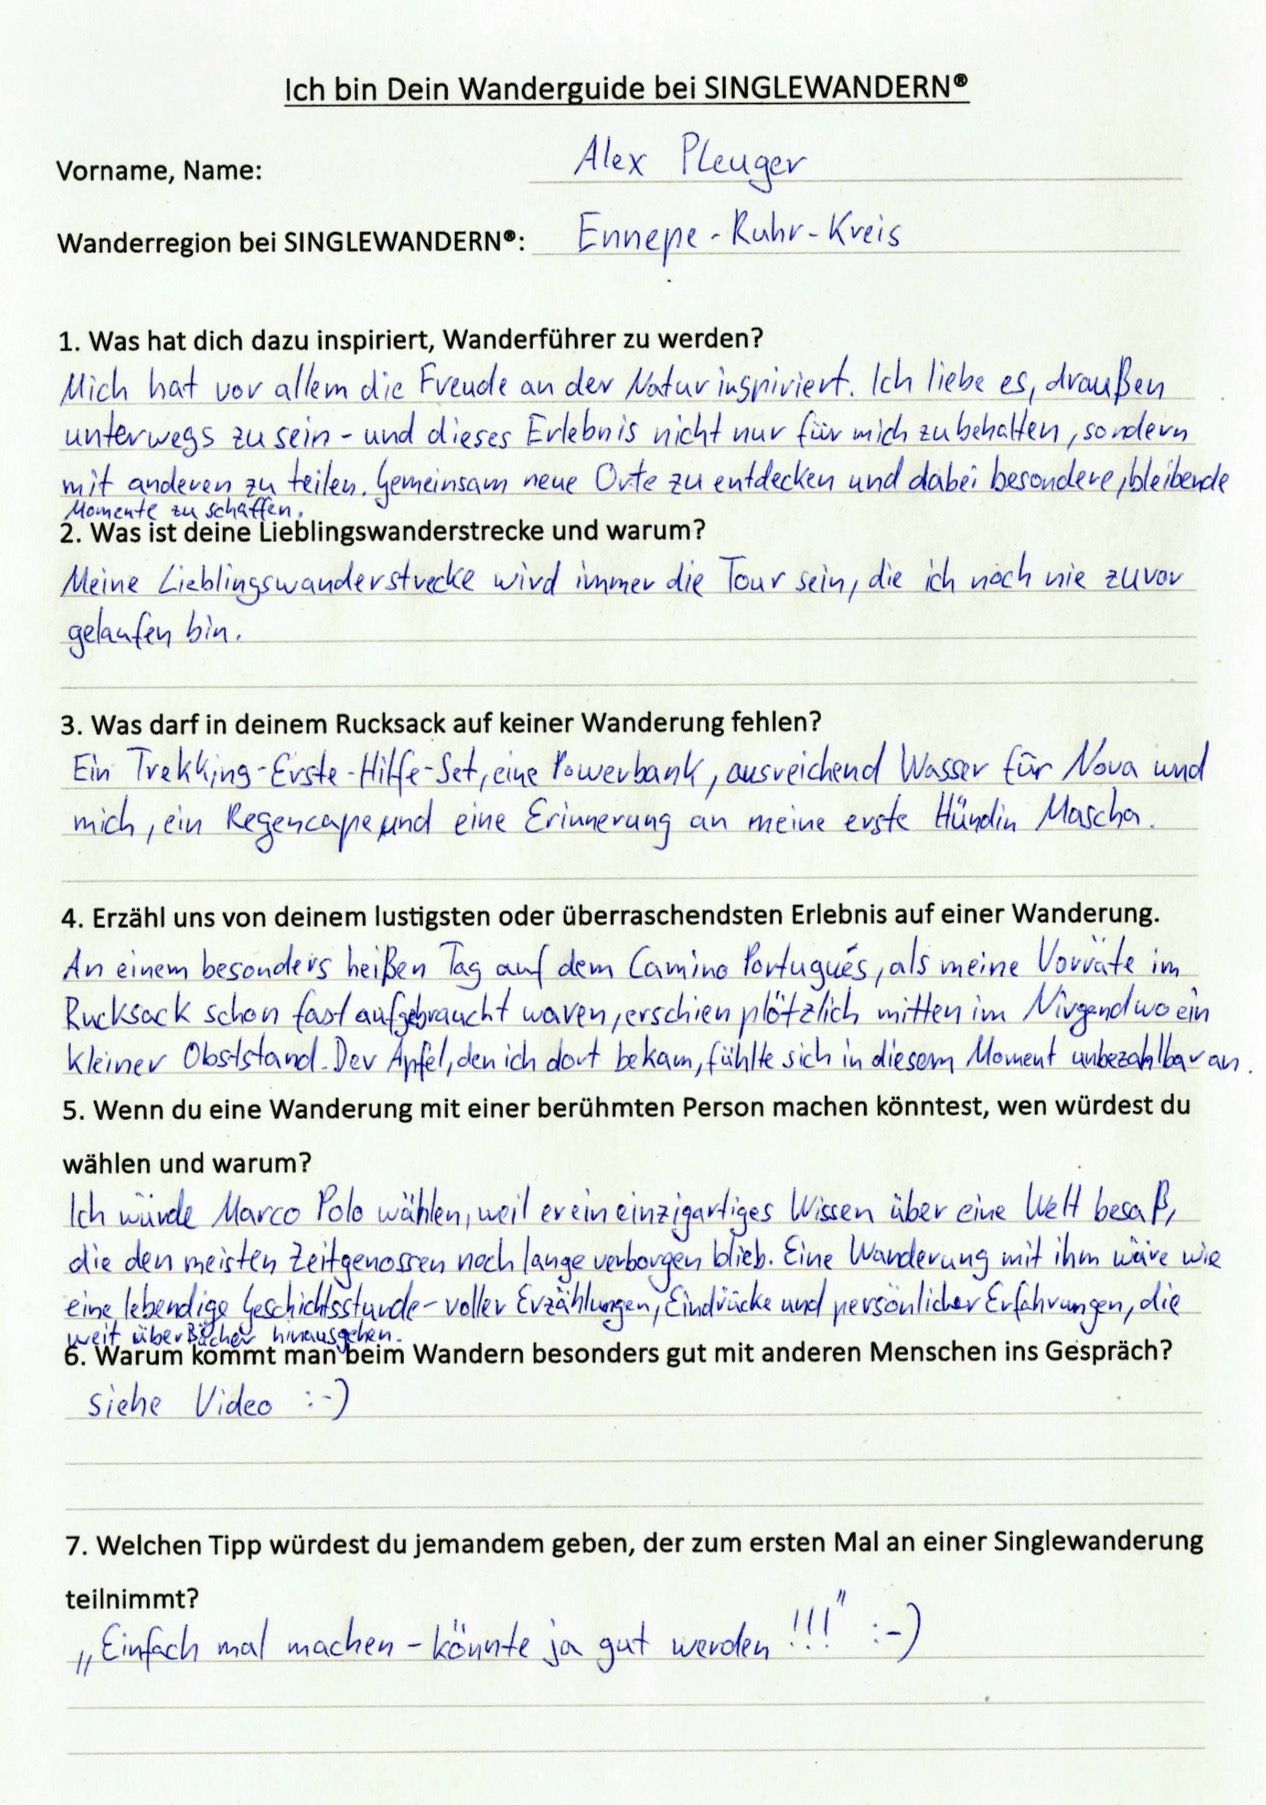 Ich bin Dein Wanderguide bei SINGLEWANDERN®
Vorname, Name: Alex Pleuger
Wanderregion bei SINGLEWANDERN®: Ennepe-Ruhr-Kreis
1. Was hat dich dazu inspiriert, Wanderführer zu werden?
Mich hat vor allem die Freude an der Natur inspiriert. Ich liebe es, draußen
unterwegs zu sein - und dieses Erlebnis nicht nur für mich zu behalten, sondern
mit anderen zu teilen. Gemeinsam neue Orte zu entdecken und dabei besondere, bleibende
Momente zu schaffen.
2. Was ist deine Lieblingswanderstrecke und warum?
Meine Lieblingswanderstrecke wird immer die Tour sein, die ich noch nie zuvor
gelaufen bin.
3. Was darf in deinem Rucksack auf keiner Wanderung fehlen?
Ein Trekking-Erste-Hilfe-Set, eine Powerbank, ausreichend Wasser für Nova und
mich, ein Regencape und eine Erinnerung an meine erste Hündin Mascha.
4. Erzähl uns von deinem lustigsten oder überraschendsten Erlebnis auf einer Wanderung.
An einem besonders heißen Tag auf dem Camino Portugués, als meine Vorräte im
Rucksack schon fast aufgebraucht waren, erschien plötzlich mitten im Nirgendwo ein
kleiner Obststand. Der Apfel, den ich dort bekam, fühlte sich in diesem Moment unbezahlbar an.
5. Wenn du eine Wanderung mit einer berühmten Person machen könntest, wen würdest du
wählen und warum?
Ich würde Marco Polo wählen, weil er ein einzigartiges Wissen über eine Welt besaß,
die den meisten Zeitgenossen noch lange verborgen blieb. Eine Wanderung mit ihm wäre wie
eine lebendige Geschichtsstunde - voller Erzählungen, Eindrücke und persönlicher Erfahrungen, die
weit über Bücher hinausgehen.
6. Warum kommt man beim Wandern besonders gut mit anderen Menschen ins Gespräch?
siehe Video :-)
7. Welchen Tipp würdest du jemandem geben, der zum ersten Mal an einer Singlewanderung
teilnimmt?
„Einfach mal machen - könnte ja gut werden!!!" :-)